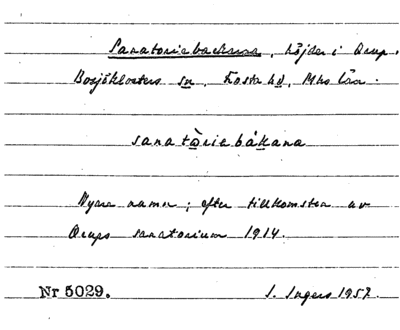 Sanatoriebackarna, höjder i Orup.
Bosjöklosters sn, Frosta hd, Mhs län.
sanatòriebákana
Nyare namn; efter tillkomsten av
Orups sanatorium 1914.
Nr 5029. I. Ingers 1957.